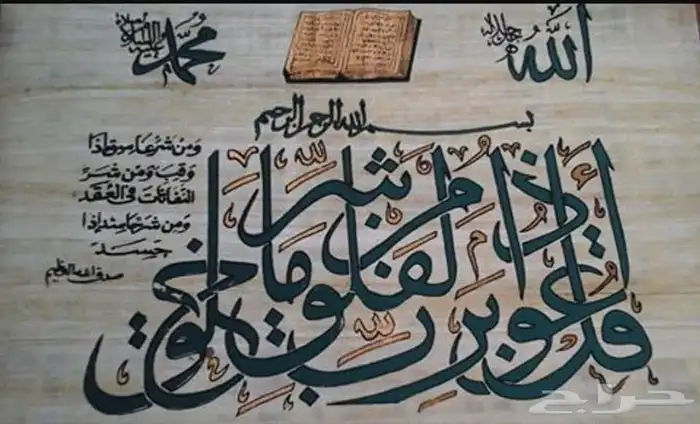 الله جل جلاله
محمد عليه الصلاة والسلام
بسم الله الرحمن الرحيم
قل أعوذ برب الفلق من شر ما خلق
ومن شر غاسق اذا
وقب ومن شر
النفاثات في العقد
ومن شر حاسد اذا
حسد
صدق الله العظيم
حراج